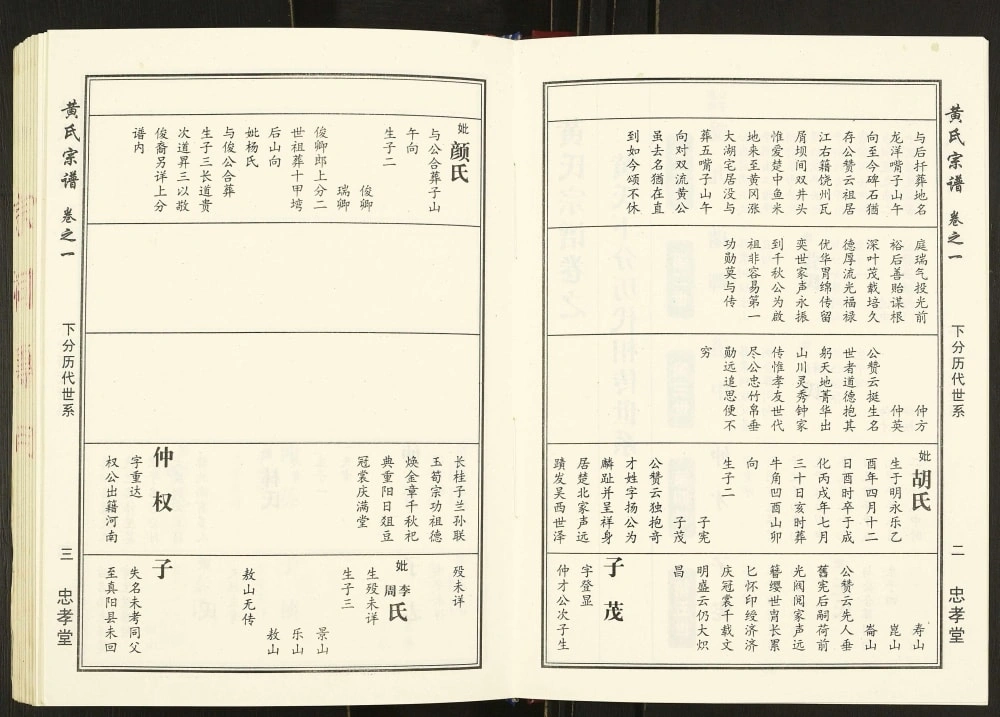 黄氏宗谱
卷之一
下分历代世系
二
忠孝堂
与后扦葬地名
龙洋嘴子山午
向至今碑石犹
存公赞云祖居
江右籍饶州瓦
屑坝间双井头
惟爱楚中鱼米
地来至黄冈涨
大湖宅居没与
葬五嘴子山午
向对双流黄公
虽去名犹在直
到如今颂不休
庭瑞气投光前
裕后善贻谋根
深叶茂栽培久
德厚流光福禄
优华胃绵传留
奕世家声永振
到千秋公为啟
祖非容易第一
功勋莫与传
仲方
仲英
公赞云挺生名
世者道德抱其
躬天地菁华出
山川灵秀钟家
传惟孝友世代
尽公忠竹帛垂
勋远追思便不
穷
妣
胡氏
生于明永乐乙
酉年四月十二
日酉时卒于成
化丙戌年七月
三十日亥时葬
牛角凹酉山卯
向
生子二
子宪
子茂
公赞云独抱奇
才姓字扬公为
麟趾并呈祥身
居楚北家声远
蹟发吴西世泽
长桂子兰孙联
玉筍宗功祖德
焕金章千秋祀
典重阳日俎豆
冠裳庆满堂
寿山
崑山
崙山
公赞云先人垂
舊宪后嗣荷前
光阀阅家声远
簪缨世胄长累
匕怀印绶济济
庆冠裳千载文
明盛云仍大炽
昌
子茂
字登显
仲才公次子生
殁未详
黄氏宗谱
卷之一
下分历代世系
三
忠孝堂
妣
颜氏
与公合葬子山
午向
生子二
俊卿
瑞卿
俊卿郎上分二
世祖葬十甲塆
后山向
妣杨氏
与俊公合葬
生子三长道贵
次道昇三以敬
俊裔另详上分
谱内
仲权
字重达
权公出籍河南
妣
李
周
氏
生殁未详
生子三
景山
乐山
敖山
敖山无传
子
失名未考同父
至真阳县未回